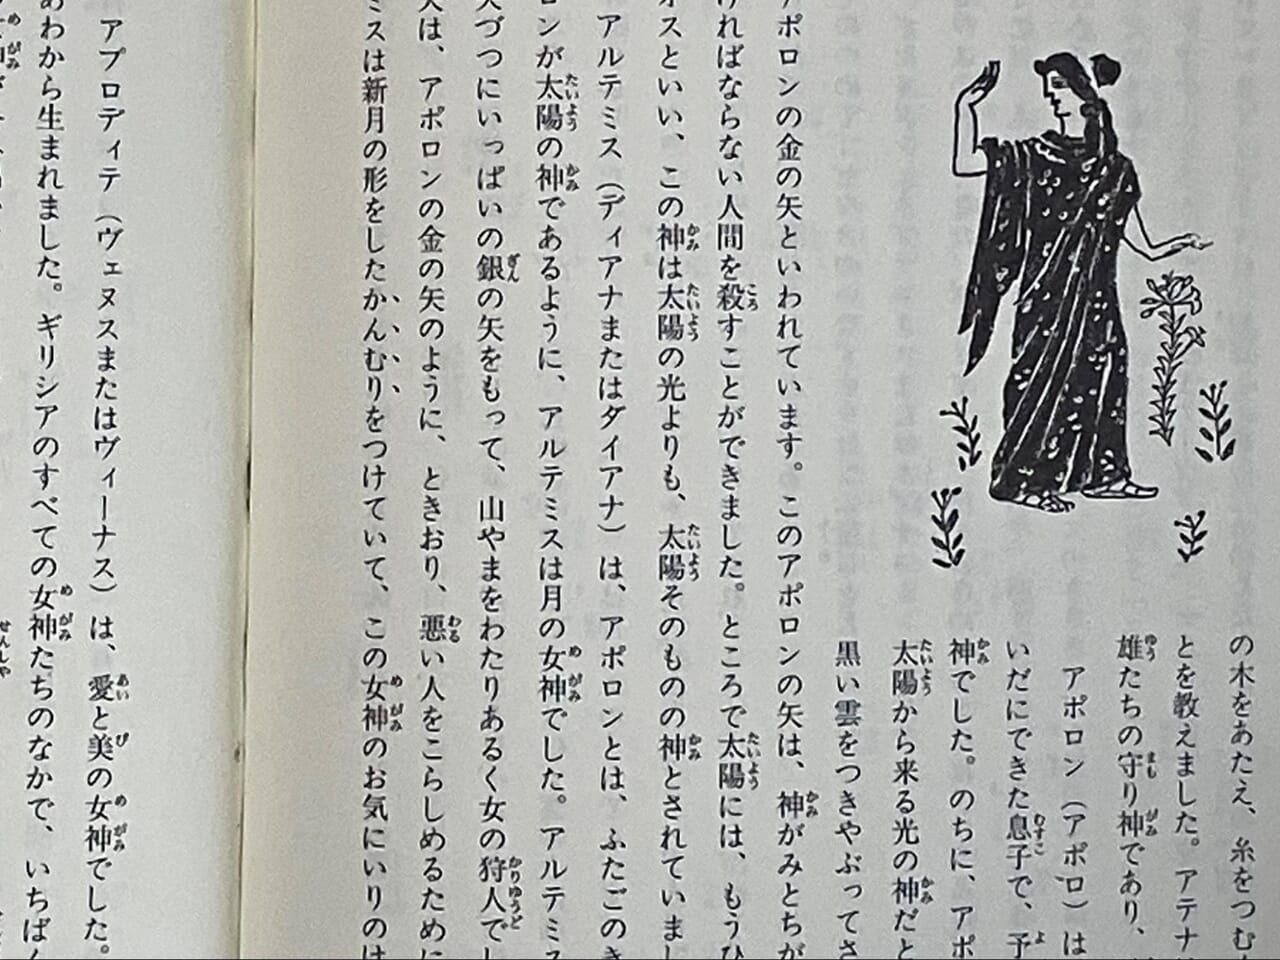 の木をあたえ、糸をつむ
とを教えました。アテナ
雄たちの守り神であり、
アポロン（アポロ）は
いだにできた息子で、予
神でした。のちに、アポ
太陽から来る光の神だと
黒い雲をつきやぶってさ
アポロンの金の矢といわれています。このアポロンの矢は、神がみとちが
ければならない人間を殺すことができました。ところで太陽には、もうひ
オスといい、この神は太陽の光よりも、太陽そのものの神とされていまし
アルテミス（ディアナまたはダイアナ）は、アポロンとは、ふたごのき
ロンが太陽の神であるように、アルテミスは月の女神でした。アルテミス
矢づつにいっぱいの銀の矢をもって、山やまをわたりあるく女の狩人でし
矢は、アポロンの金の矢のように、ときおり、悪い人をこらしめるために
ミスは新月の形をしたかんむりをつけていて、この女神のお気にいりのは
アプロディテ（ヴェヌスまたはヴィーナス）は、愛と美の女神でした。
あわから生まれました。ギリシアのすべての女神たちのなかで、いちばん